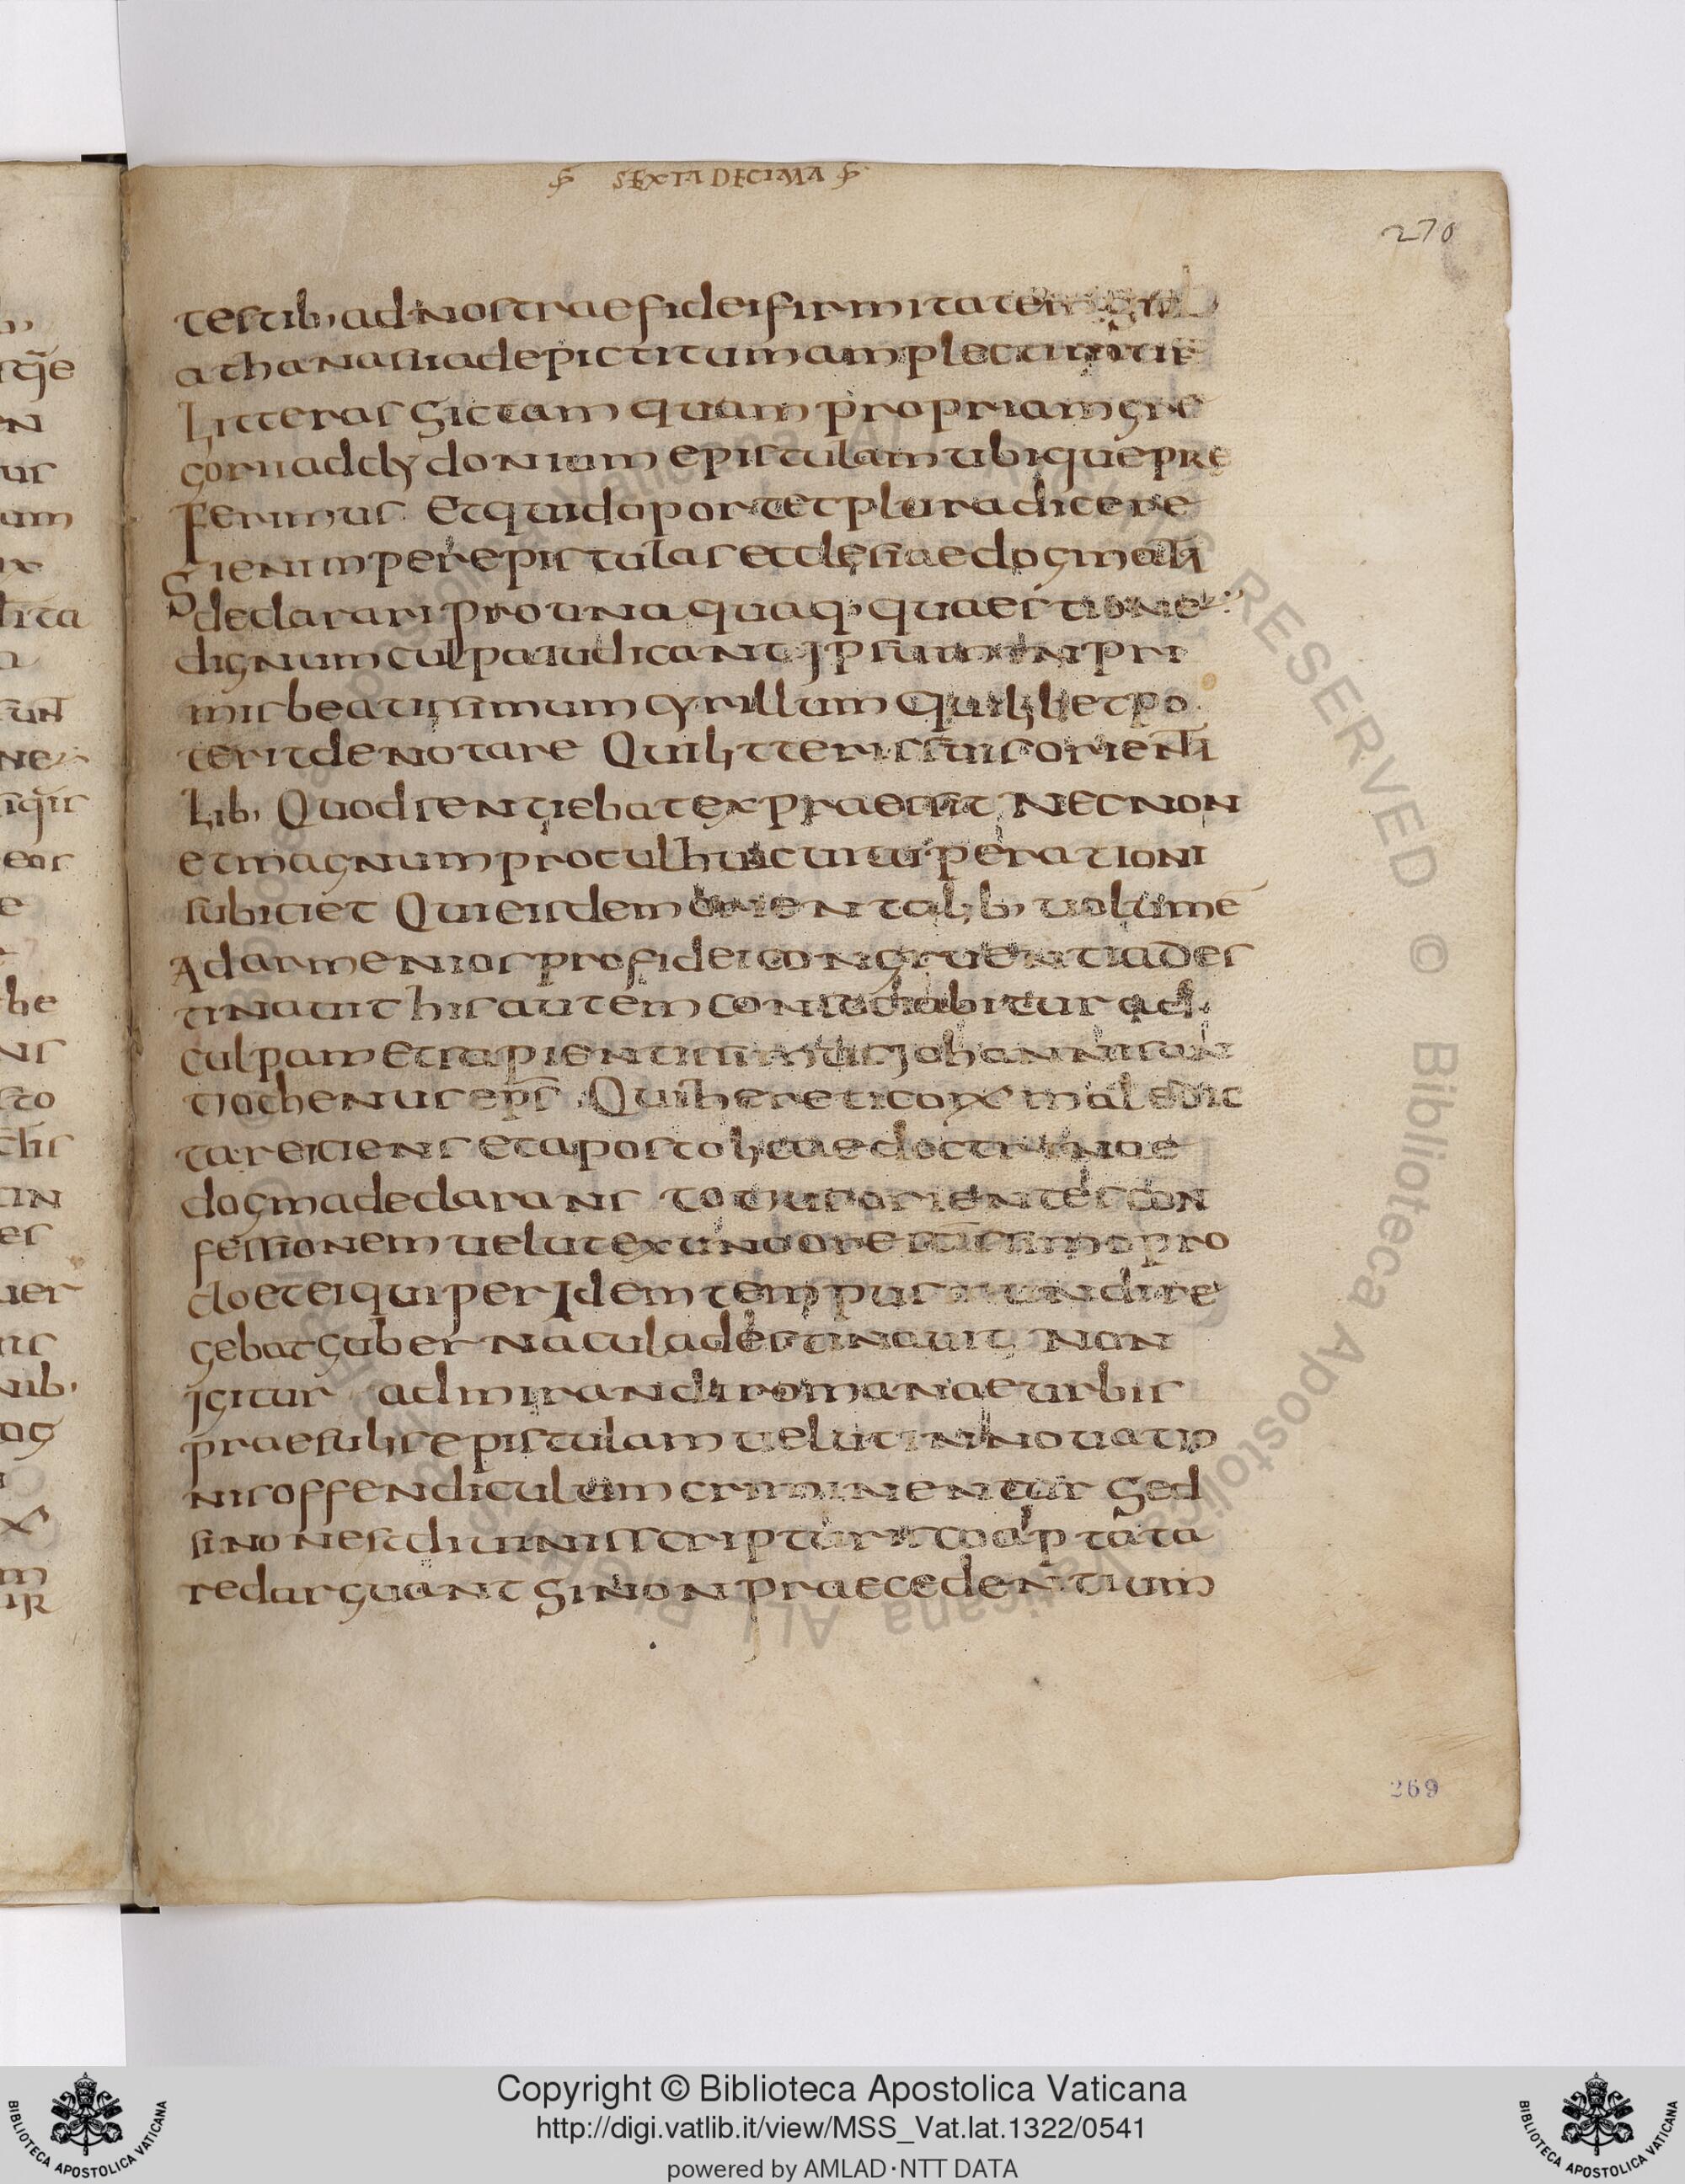 SEXTA DECIMA
270
testib, ad nostrae fidei firmitatem
athanasii ad epictitum amplectimur
Litteras Sic tam quam propriam gre
gorii ad clydonium epistulam ubique pre
ferimus Et quid oportet plura dicere
Si enim per epistulas ecclesiae dogmati
declarari pro una quaq, quaestione
dignum culpa iudicant Ipsum in pri
mis beatissimum cyrillum Quilibet po
terit denotare Qui litteris suis orienta
Lib, Quod sentiebat expraessit Nec non
et magnum proculi huic uituperationi
subiciet Qui eisdem orientalib, uolumē
Ad armenios pro fidei congruentia des
tinauit his autem consociabitur ad
culpam et sapientissimus Iohannis an
tiochenus eps Qui hereticoꝝ maledic
ta reiciens et apostolicae doctrinae
dogma declarans totius orientes con
fessionem uelut ex uno ore sctissimo pro
clo et ei qui per Idem tempus mundi re
gebat gubernacula destinauit Non
igitur admirandi romanae urbis
praesulis epistulam uelut innouatio
nis offendiculum criminentur Sed
si non est diuinis scripturis coaptata
redarguant Si non praecedentium
269
Copyright © Biblioteca Apostolica Vaticana
http://digi.vatlib.it/view/MSS_Vat.lat.1322/0541
powered by AMLAD·NTT DATA
BIBLIOTECA APOSTOLICA VATICANA
BIBLIOTECA APOSTOLICA VATICANA